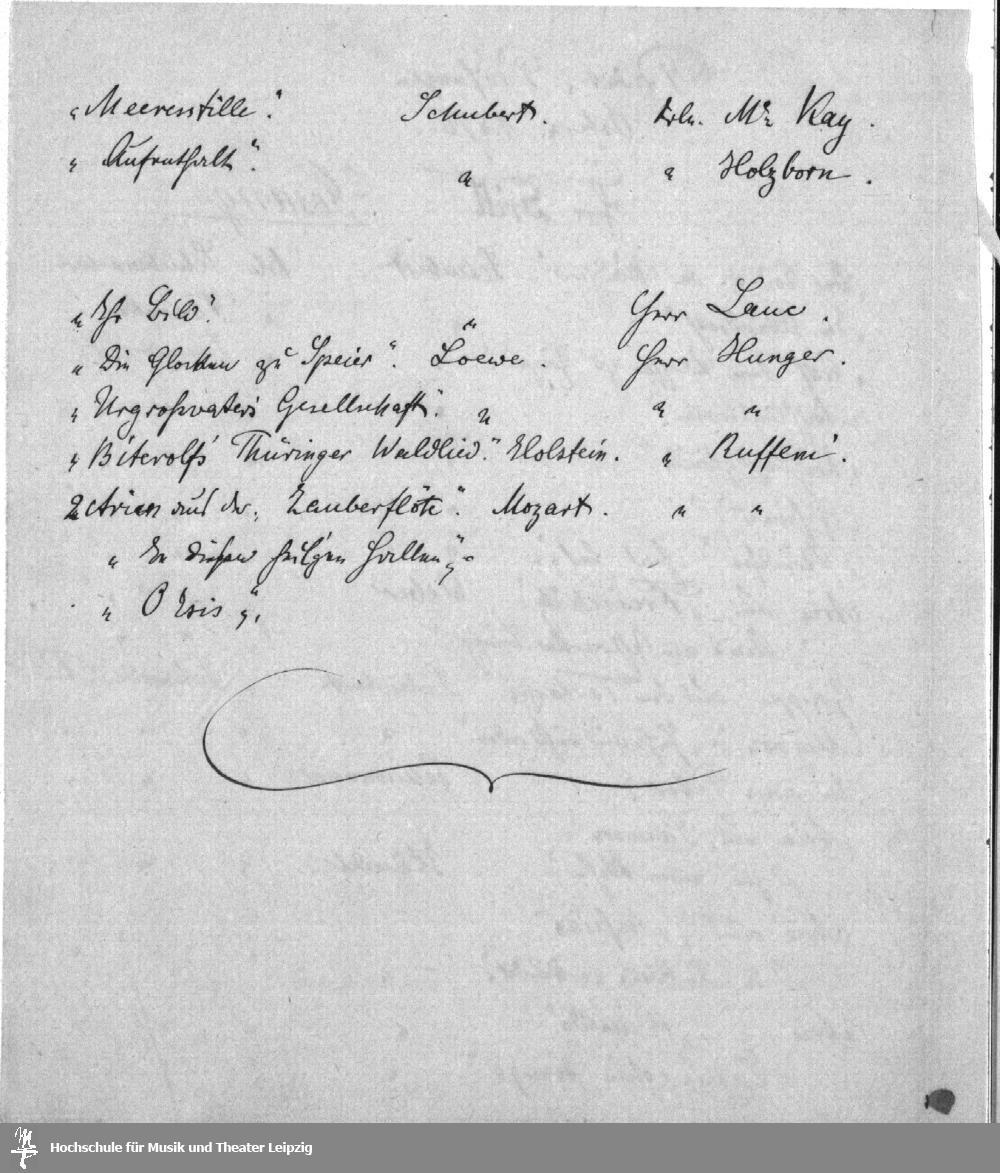 „Meeresstille". Schubert. Frln. Mc Kay.
„Aufenthalt". " " Holzborn.
„Ihr Bild". " Herr Lanc.
„Die Glocken zu Speier". Loewe. Herr Hunger.
„Urgrossvaters Gesellschaft". " " "
„Biterolfs Thüringer Waldlied." Holstein. " Ruffeni.
2 Arien aus der „Zauberflöte". Mozart. " "
„In diesen heil'gen Hallen"
„O Isis"
Hochschule für Musik und Theater Leipzig